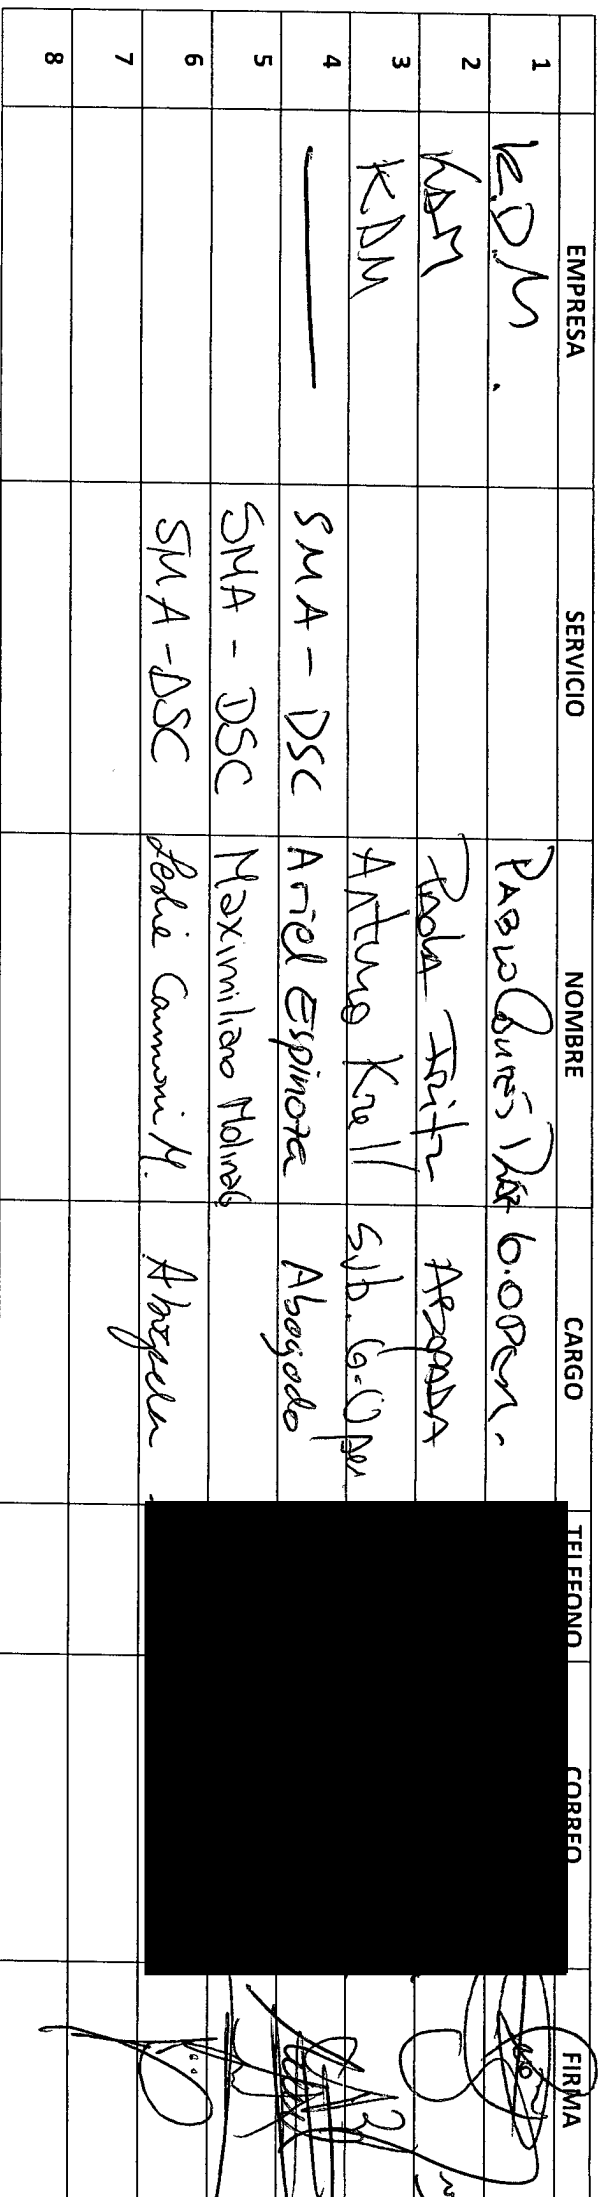 EMPRESA SERVICIO NOMBRE CARGO TELEFONO CORREO FIRMA
1 K.D.M. PABLO Cortés Díaz G.OPER.
2 KDM PAOLA FRITZ ABOGADA
3 KDM Arturo Krell Sub. G. Oper
4 — SMA - DSC Ariel Espinoza Abogado
5 SMA - DSC Maximiliano Molina
6 SMA - DSC Leslie M. Abogada
7
8